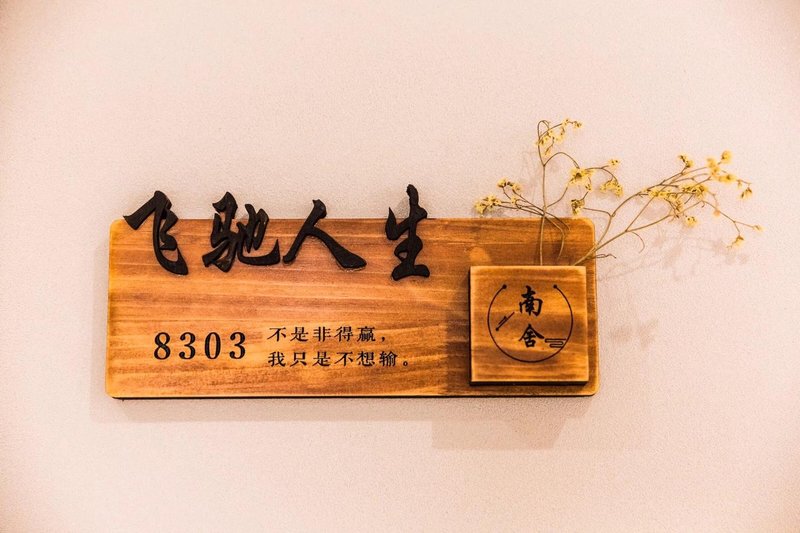 飞驰人生
8303
不是非得赢，
我只是不想输。
南舍